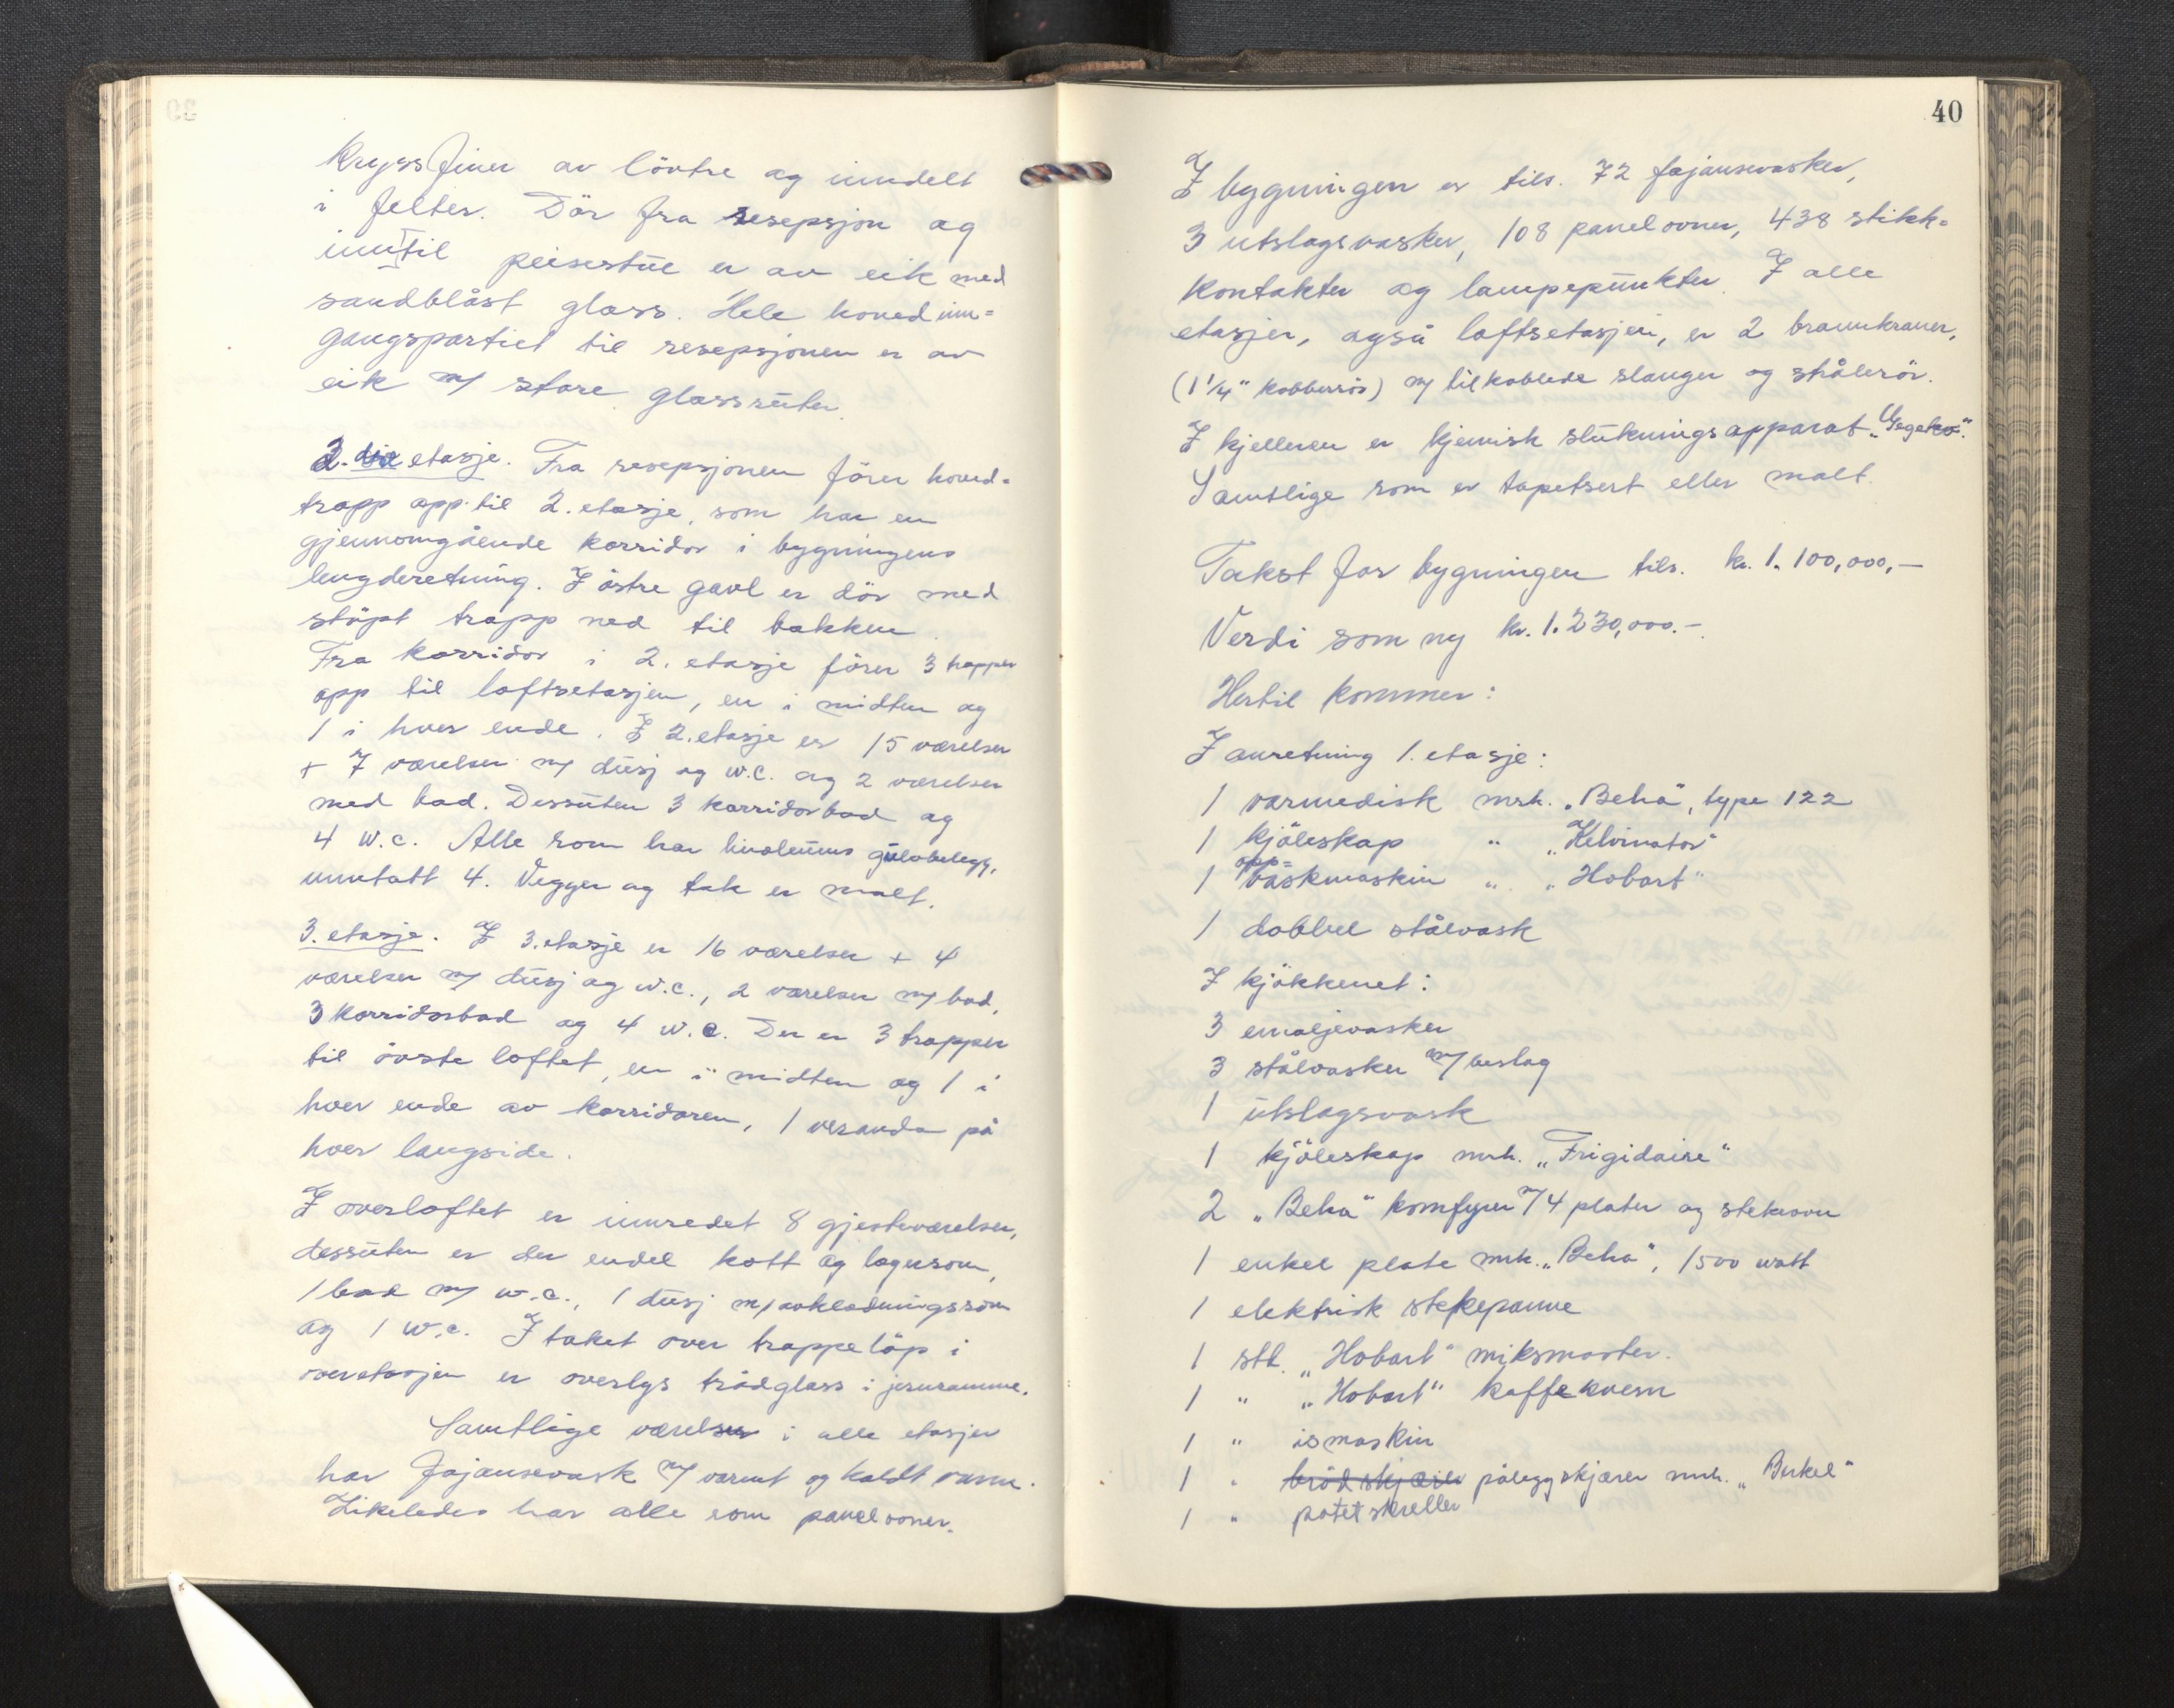 kryssfiner av lövtre og inndelt
i felter. Dör fra resepsjon og
inntil peisestue er av eik med
sandblåst glass. Hele hovedinn=
gangspartiet til resepsjonen er av
eik m/ store glassruter.
2. etasje. Fra resepsjonen förer hoved=
trapp opp til 2. etasje, som har en
gjennomgående korridor i bygningens
lengderetning. I östre gavl er dör med
stöpt trapp ned til bakken.
Fra korridor i 2. etasje förer 3 trapper
opp til loftsetasjen, en i midten og
1 i hver ende. I 2. etasje er 15 værelser
+ 7 værelser m/ dusj og w.c. og 2 værelser
med bad. Dessuten 3 korridorbad og
4 w.c. Alle rom har linoleums gulvbelegg,
unntatt 4. Vegger og tak er malt.
3. etasje. I 3. etasje er 16 værelser + 4
værelser m/ dusj og w.c., 2 værelser m/ bad,
3 korridorbad og 4 w.c. Der er 3 trapper
til övste loftet, en i midten og 1 i
hver ende av korridoren, 1 veranda på
hver langside.
I overloftet er innredet 8 gjesteværelser,
dessuten er der endel kott og lagerrom,
1 bad m/ w.c., 1 dusj m/avkledningsrom
og 1 w.c. I taket over trappelöp i
överetasjen er overlys trådglass i jernramme.
Samtlige værelser i alle etasjer
har fajansevask m/ varmt og kaldt vann.
Likeledes har alle rom panelovner.
40
I bygningen er tils. 72 fajansevasker,
3 utslagsvasker, 108 panelovner, 438 stikk=
kontakter og lampepunkter. I alle
etasjer, også loftsetasjen, er 2 brannkraner,
(1 1/4" kobberrör) m/ tilkoblede slanger og strålerör.
I kjelleren er kjemisk slukningsapparat
Samtlige rom er tapetsert eller malt.
Takst for bygningen tils. kr. 1.100,000,-
Verdi som ny kr. 1.230,000.-
Hertil kommer:
I anretning 1. etasje:
1 varmedisk mrk. „Beha", type 122
1 kjöleskap " „Kelvinator"
1 opp=vaskmaskin " „Hobart"
1 dobbel stålvask
I kjökkenet:
3 emaljevasker
3 stålvasker m/ beslag
1 utslagsvask
1 kjöleskap mrk. „Frigidaire"
2 „Beha" komfyrer m/ 4 plater og stekeovn
1 enkel plate mrk. „Beha", 1500 watt
1 elektrisk stekepanne
1 stk. „Hobart" miksmaster.
1 " „Hobart" kaffekvern
1 " ismaskin
1 " brödskjærer påleggskjærer mrk. „Berkel"
1 " potetskreller